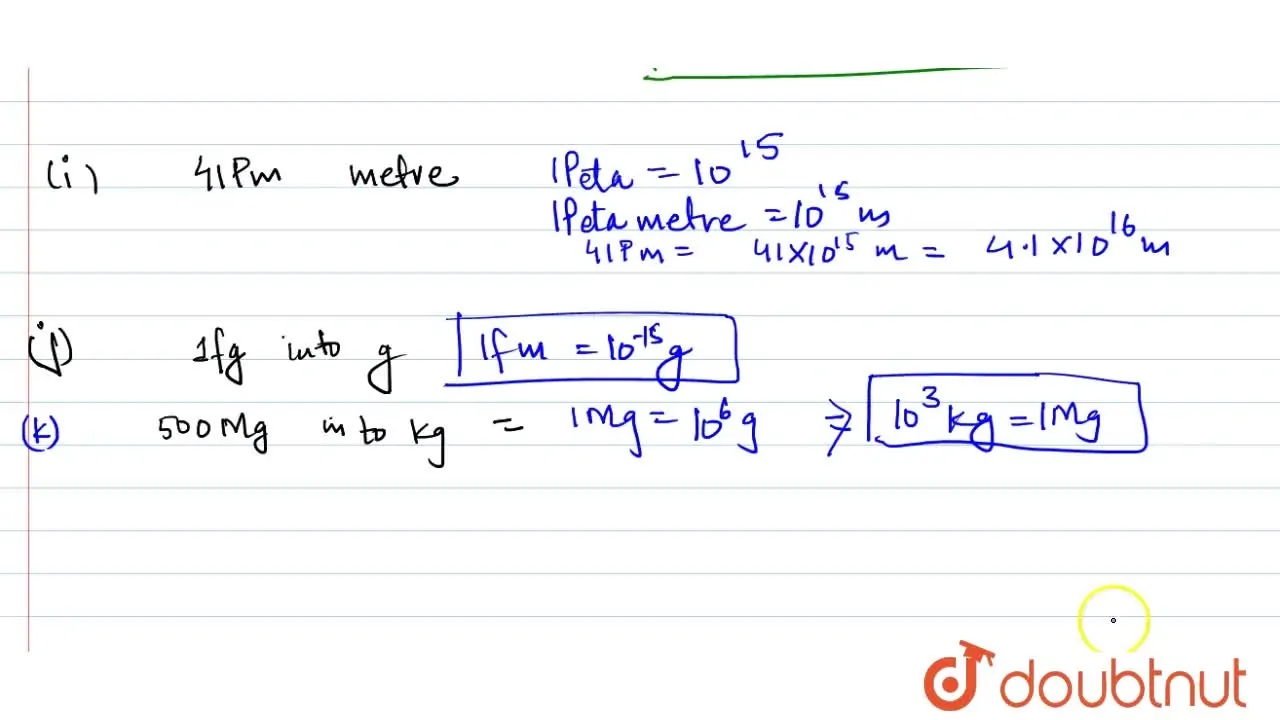 (i) 41Pm metre 1Peta = 10^15
1Peta metre = 10^15 m
41Pm = 41×10^15 m = 4.1×10^16 m
(j) 1fg into g 1fm = 10^-15 g
(k) 500Mg in to kg = 1Mg = 10^6 g ⇒ 10^3 kg = 1Mg
doubtnut